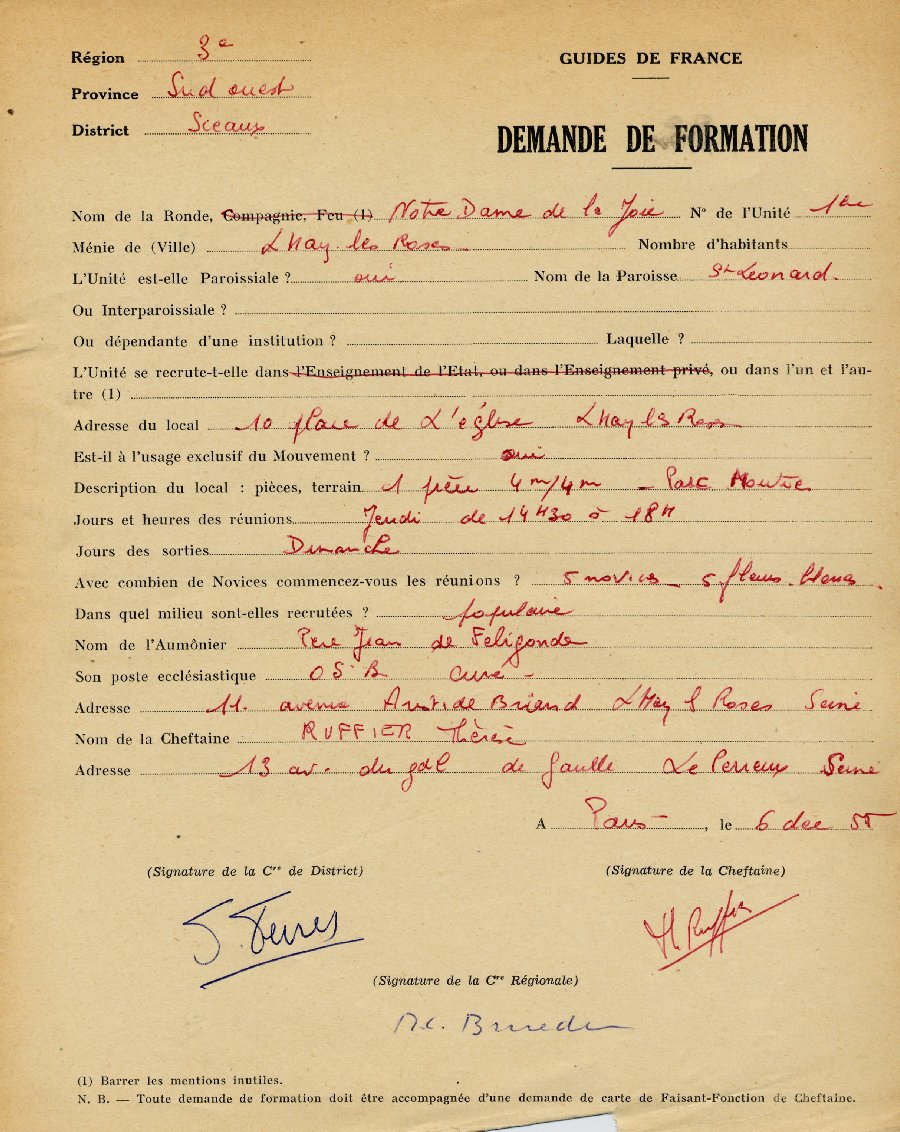 Région 3e
GUIDES DE FRANCE
Province Sud ouest
District Sceaux
DEMANDE DE FORMATION
Nom de la Ronde, Compagnie, Feu (1) Notre Dame de la Joie N° de l'Unité 1ère
Ménie de (Ville) L'Hay-les Roses Nombre d'habitants
L'Unité est-elle Paroissiale ? oui Nom de la Paroisse St Léonard.
Ou Interparoissiale ?
Ou dépendante d'une institution ? Laquelle ?
L'Unité se recrute-t-elle dans l'Enseignement de l'Etat, ou dans l'Enseignement privé, ou dans l'un et l'au-
tre (1)
Adresse du local 10 place de L'église L'Hay les Roses
Est-il à l'usage exclusif du Mouvement ? oui
Description du local : pièces, terrain 1 pièce 4m/4m - Parc
Jours et heures des réunions Jeudi de 14H30 à 18H
Jours des sorties Dimanche
Avec combien de Novices commencez-vous les réunions ? 5 novices - 5 fleurs bleues.
Dans quel milieu sont-elles recrutées ? populaire
Nom de l'Aumônier Père Jean de Féligonde
Son poste ecclésiastique OSB Curé -
Adresse 11. avenue Aristide Briand L'Hay l Roses Seine
Nom de la Cheftaine RUFFIER Thérèse
Adresse 13 av. du gal de Gaulle Le Perreux Seine
A Paris, le 6 dec 55
(Signature de la Cre de District) (Signature de la Cheftaine)
Th. Ruffier
(Signature de la Cre Régionale)
(1) Barrer les mentions inutiles.
N. B. — Toute demande de formation doit être accompagnée d'une demande de carte de Faisant-Fonction de Cheftaine.